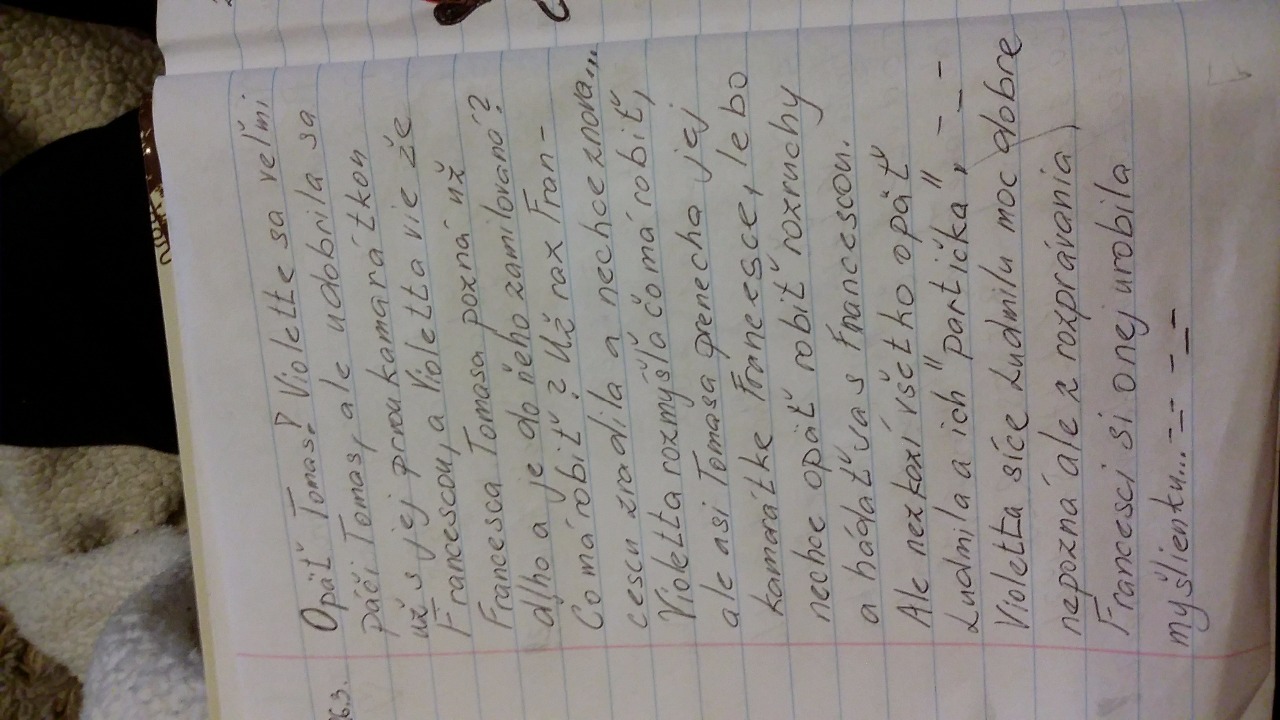 Opäť Tomas? Violette sa veľmi
páči Tomas, ale udobrila sa
už s jej prvou kamarátkou
Francescou, a Violetta vie že
Francesca Tomasa pozná už
dlho a je do neho zamilovaná?
Čo má robiť? Už raz Fran-
cescu zradila a nechce znova...
Violetta rozmýšľa čo má robiť,
ale asi Tomasa prenecha jej
kamarátke Francesce, lebo
nechce opäť robiť rozruchy
a hádať sa s Francescou.
Ale nezkazí všetko opäť
Ludmila a ich "partička",
Violetta síce Ludmilu moc dobre
nepozná ale z rozprávania
Francesci si o nej urobila
myšlienku...